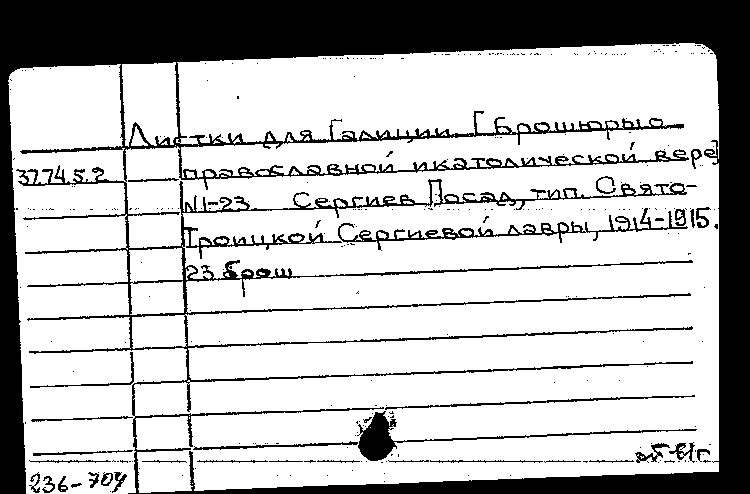 Листки для Галиции. [Брошюры о
37.74.5.2 православной и католической вере]
N1-23. Сергиев Посад, тип. Свято-
Троицкой Сергиевой лавры, 1914-1915.
23 брош
236-704